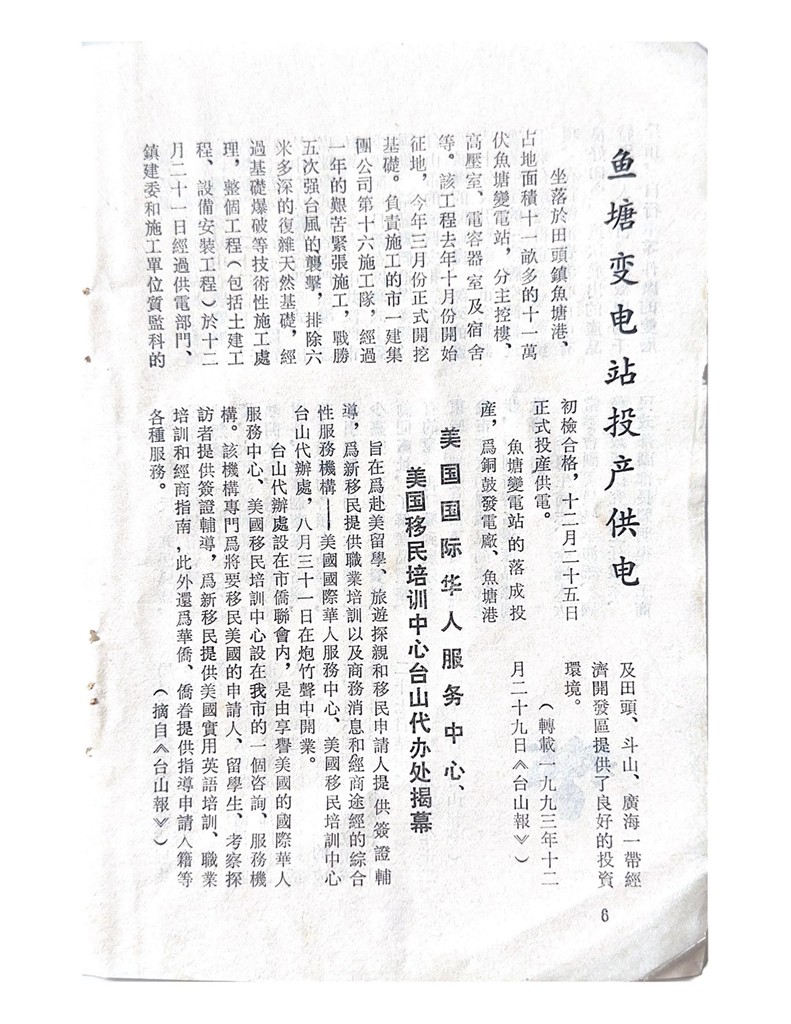 鱼塘变电站投产供电
坐落於田頭鎮魚塘港、
占地面積十一畝多的十一萬
伏魚塘變電站，分主控樓、
高壓室、電容器室及宿舍
等。該工程去年十月份開始
征地，今年三月份正式開挖
基礎。負責施工的市一建集
團公司第十六施工隊，經過
一年的艱苦緊張施工，戰勝
五次强台風的襲擊，排除六
米多深的復雜天然基礎，經
過基礎爆破等技術性施工處
理，整個工程（包括土建工
程、設備安裝工程）於十二
月二十一日經過供電部門、
鎮建委和施工單位質監科的
初檢合格，十二月二十五日
正式投産供電。
魚塘變電站的落成投
産，爲銅鼓發電廠、魚塘港
及田頭、斗山、廣海一帶經
濟開發區提供了良好的投資
環境。
（轉載一九九三年十二
月二十九日《台山報》）
美国国际华人服务中心、
美国移民培训中心台山代办处揭幕
旨在爲赴美留學、旅遊探親和移民申請人提供簽證輔
導，爲新移民提供職業培訓以及商務消息和經商途經的綜合
性服務機構——美國國際華人服務中心、美國移民培訓中心
台山代辦處，八月三十一日在炮竹聲中開業。
台山代辦處設在市僑聯會内，是由享譽美國的國際華人
服務中心、美國移民培訓中心設在我市的一個咨詢、服務機
構。該機構專門爲將要移民美國的申請人、留學生、考察探
訪者提供簽證輔導，爲新移民提供美國實用英語培訓、職業
培訓和經商指南，此外還爲華僑、僑眷提供指導申請入籍等
各種服務。
（摘自《台山報》）
6